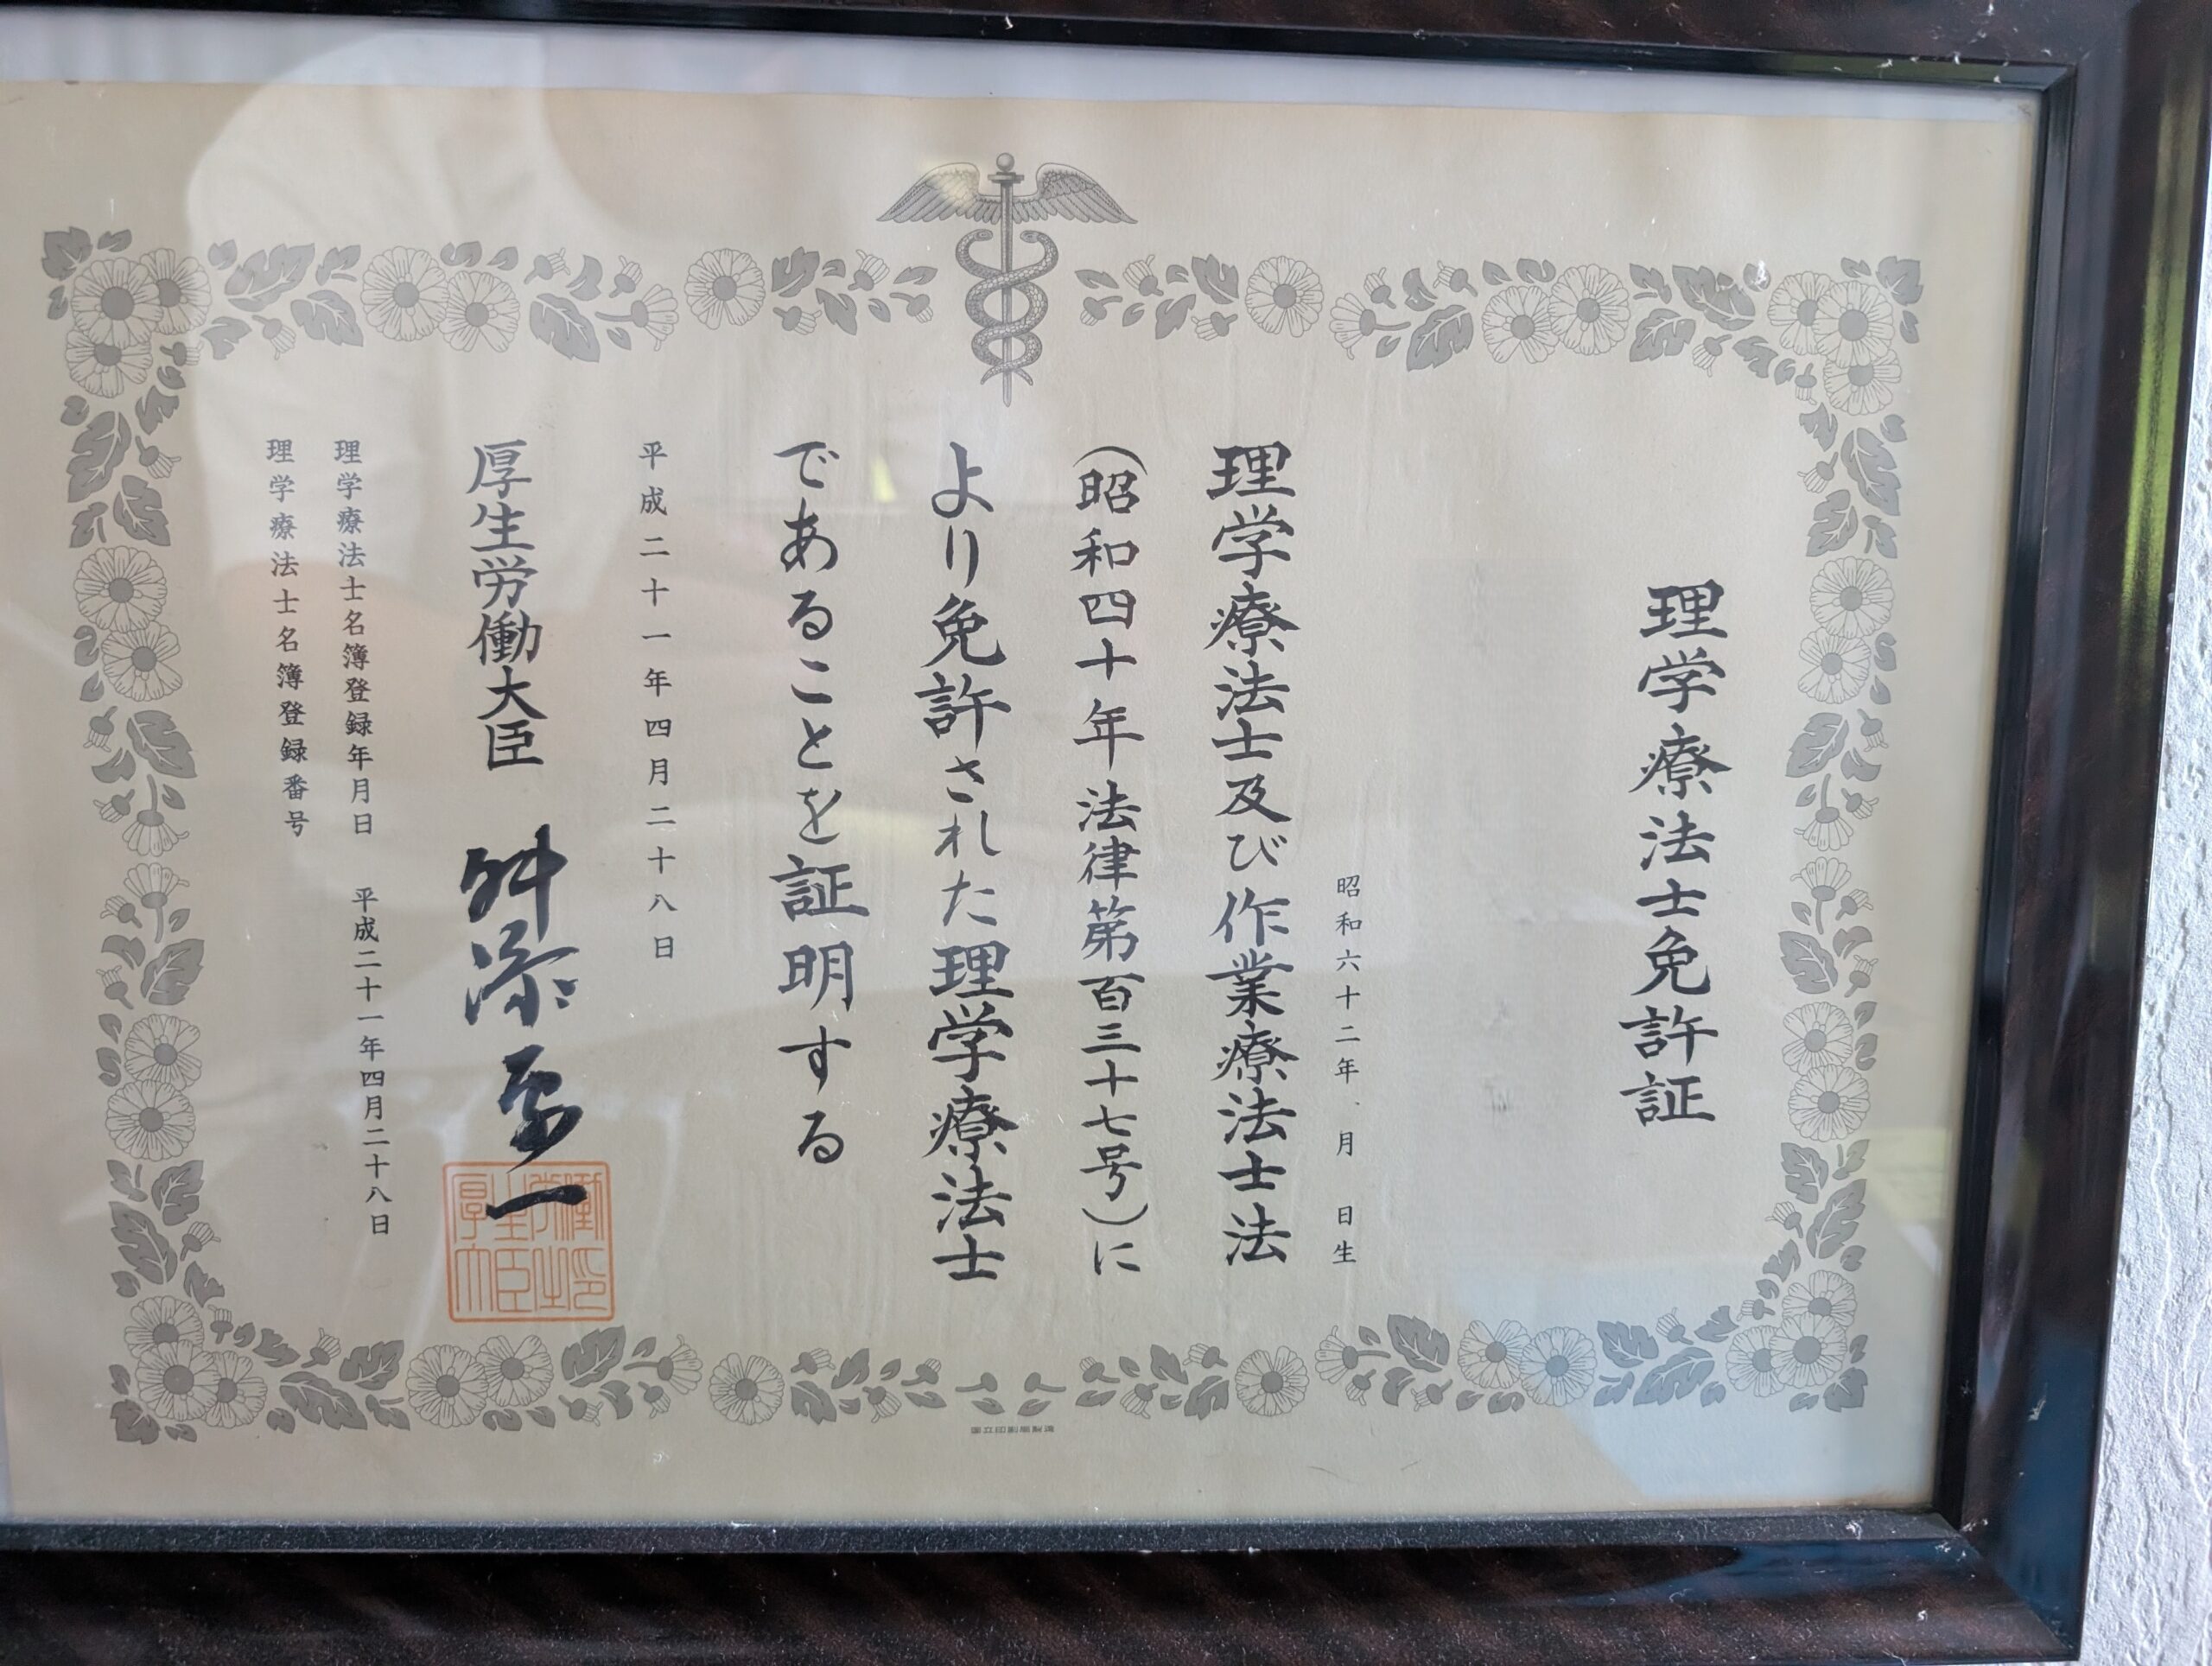 理学療法士免許証
昭和六十二年 月 日生
理学療法士及び作業療法士法
(昭和四十年法律第百三十七号)に
より免許された理学療法士
であることを証明する
平成二十一年四月二十八日
厚生労働大臣 舛添要一
理学療法士名簿登録年月日 平成二十一年四月二十八日
理学療法士名簿登録番号
国立印刷局製造